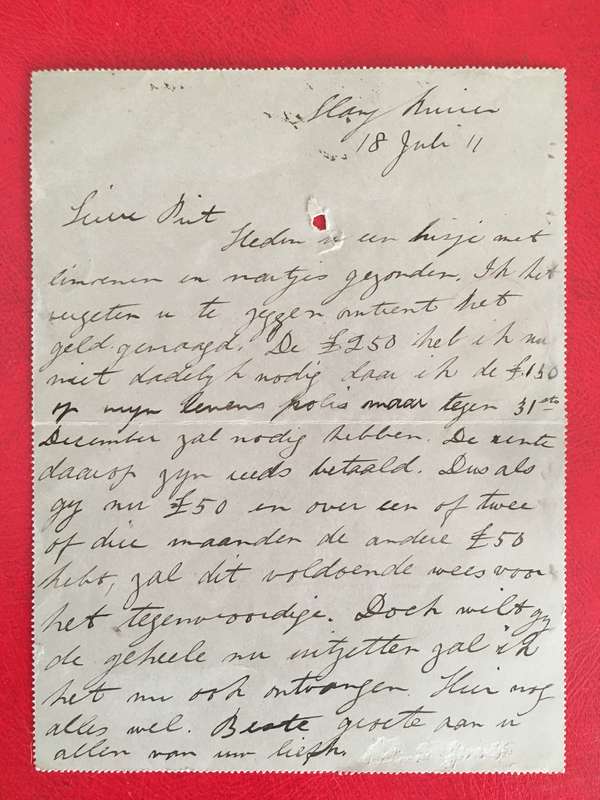 18 Juli 11
Lieve Piet
Heden u een kisje met
limoenen en nartjes gezonden. Ik het
vergeten u te zeggen omtrent het
geld gevraagd. De £250 heb ik nu
niet dadelyk nodig daar ik de £150
op myn levens polis maar tegen 31ste
December zal nodig hebben. De rente
daarop zyn reeds betaald. Dus als
gy nu £50 en over een of twee
of drie maanden de andere £50
hebt, zal dit voldoende wees voor
het tegenwoordige. Doch wilt gy
de geheele nu uitzetten zal ik
het nu ook ontvangen. Hier nog
alles wel. Beste groete aan u
allen van uw liefh.